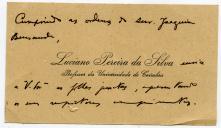 Cumprindo as ordens do Snr. Joaquim
Bensaude,
Luciano Pereira da Silva envia
Professor da Universidade de Coimbra
a V. as folhas juntas, apresentando
os seus respeitosos cumprimentos.